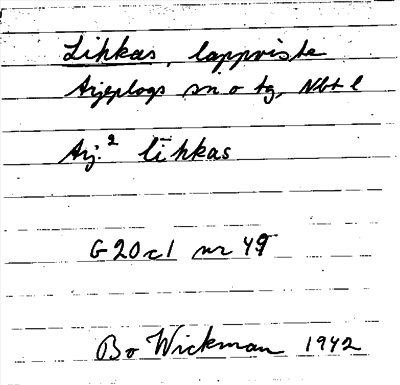 Lihkas, lappviste
Arjeplogs sn o tg, Nbt l
Arj.² līhkas
G 20 c 1 nr 49
Bo Wickman 1942